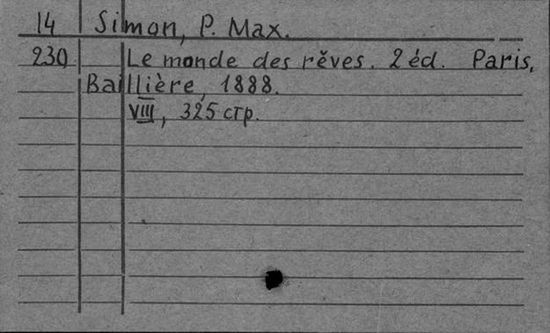 14 Simon, P. Max.
230 Le monde des rěves. 2 éd. Paris,
Baillière, 1888.
VIII, 325 стр.